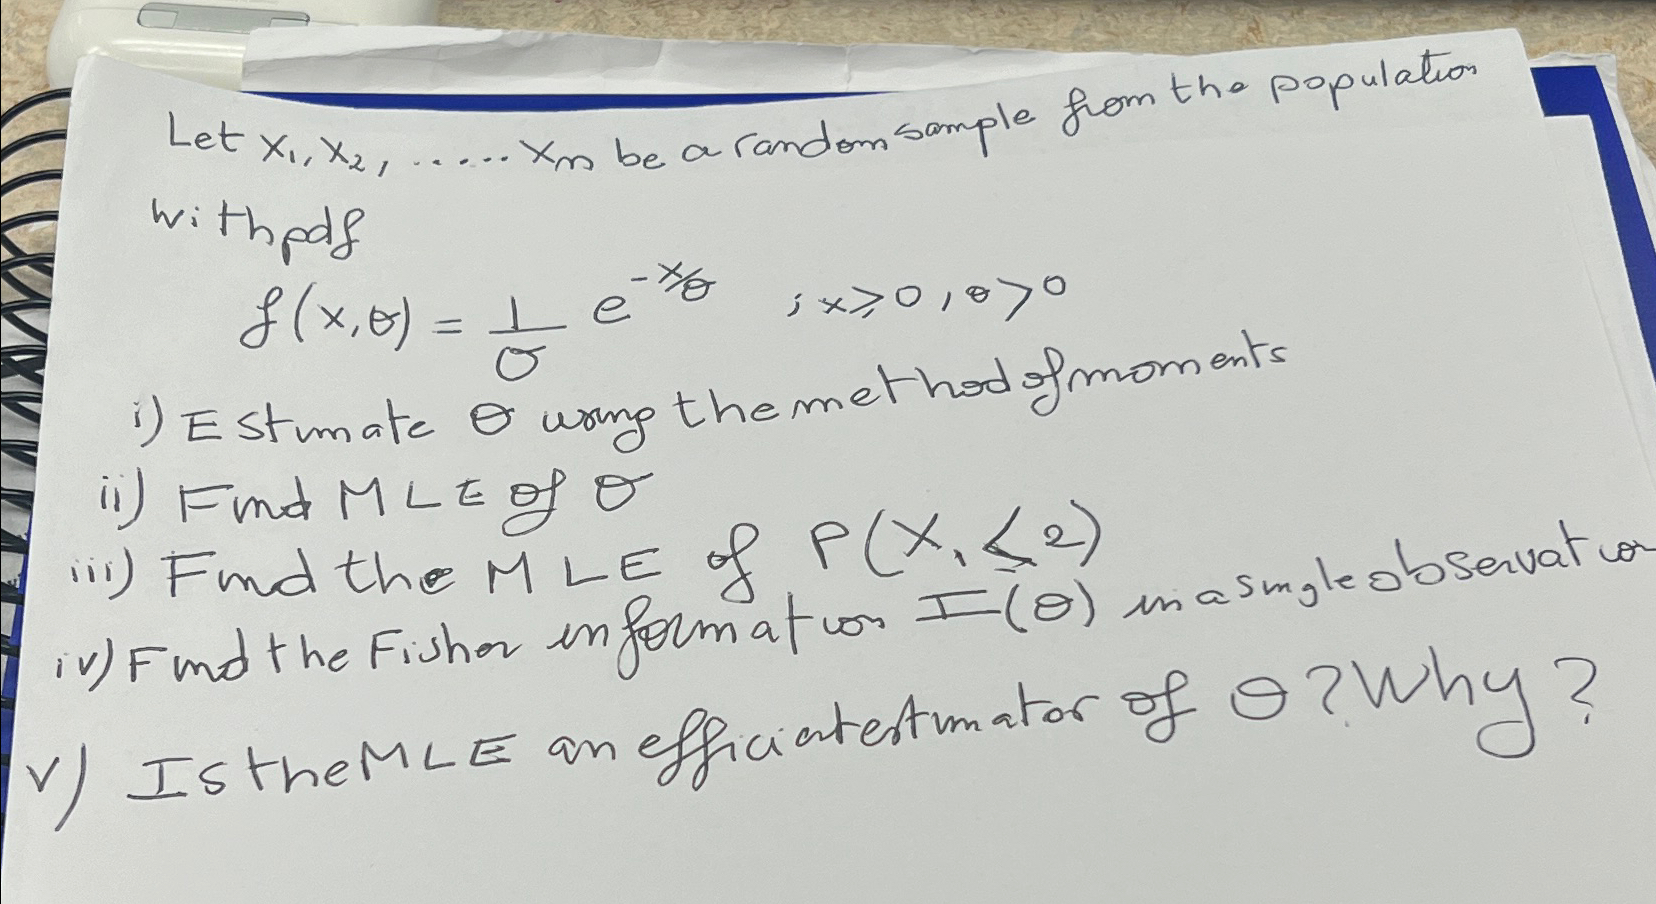 Let X₁, X₂, ..... Xn be a random sample from the population
with pdf
f(x,θ) = 1/θ e^(-x/θ) ; x ≥ 0, θ > 0
i) Estimate θ using the method of moments
ii) Find MLE of θ
iii) Find the MLE of P(X₁ ≤ 2)
iv) Find the Fisher information I(θ) in a single observation
v) Is the MLE an efficient estimator of θ? Why?